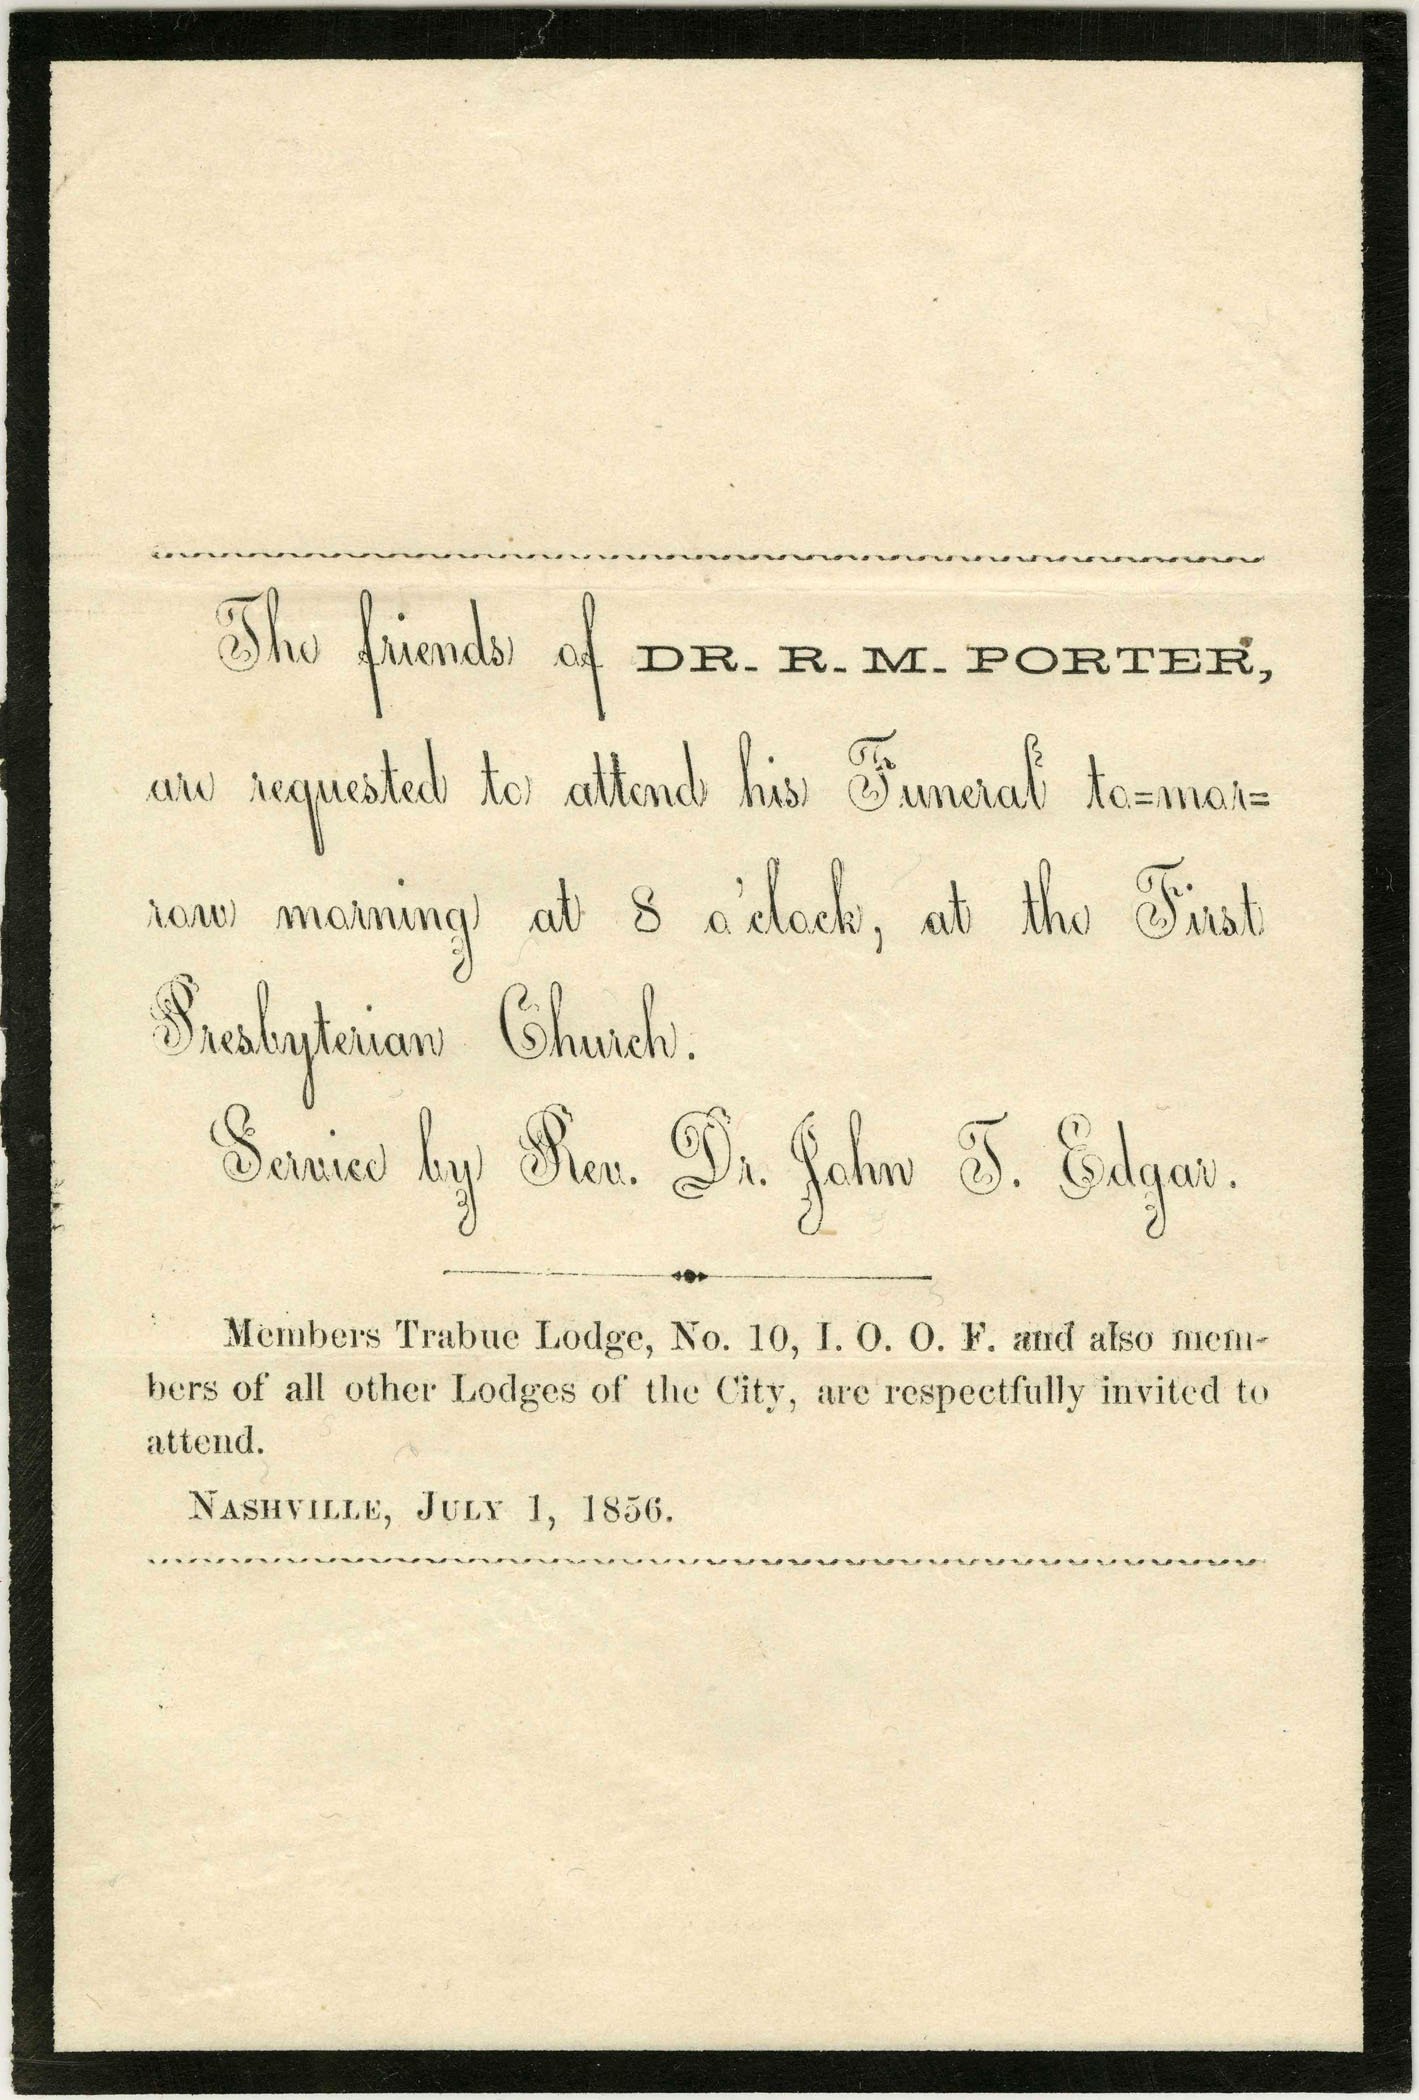 The friends of DR. R. M. PORTER,
are requested to attend his Funeral to=mor=
row morning at 8 o'clock, at the First
Presbyterian Church.
Service by Rev. Dr. John T. Edgar.
Members Trabue Lodge, No. 10, I. O. O. F. and also mem-
bers of all other Lodges of the City, are respectfully invited to
attend.
NASHVILLE, JULY 1, 1856.